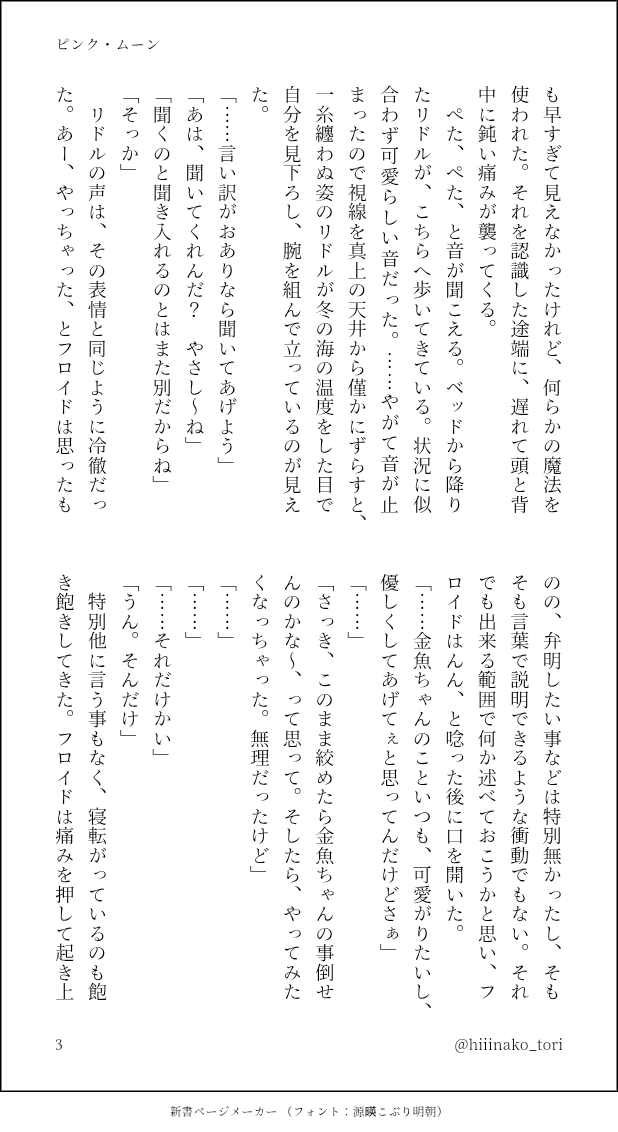 ピンク・ムーン
も早すぎて見えなかったけれど、何らかの魔法を
使われた。それを認識した途端に、遅れて頭と背
中に鈍い痛みが襲ってくる。
　ぺた、ぺた、と音が聞こえる。ベッドから降り
たリドルが、こちらへ歩いてきている。状況に似
合わず可愛らしい音だった。……やがて音が止
まったので視線を真上の天井から僅かにずらすと、
一糸纏わぬ姿のリドルが冬の海の温度をした目で
自分を見下ろし、腕を組んで立っているのが見え
た。
「……言い訳がおありなら聞いてあげよう」
「あは、聞いてくれんだ？　やさし〜ね」
「聞くのと聞き入れるのとはまた別だからね」
「そっか」
　リドルの声は、その表情と同じように冷徹だっ
た。あー、やっちゃった、とフロイドは思ったも
のの、弁明したい事などは特別無かったし、そも
そも言葉で説明できるような衝動でもない。それ
でも出来る範囲で何か述べておこうかと思い、フ
ロイドはんん、と唸った後に口を開いた。
「……金魚ちゃんのこといつも、可愛がりたいし、
優しくしてあげてぇと思ってんだけどさぁ」
「……」
「さっき、このまま絞めたら金魚ちゃんの事倒せ
んのかな〜、って思って。そしたら、やってみた
くなっちゃった。無理だったけど」
「……」
「……」
「……それだけかい」
「うん。そんだけ」
　特別他に言う事もなく、寝転がっているのも飽
き飽きしてきた。フロイドは痛みを押して起き上
3
@hiiinako_tori
新書ページメーカー（フォント：源暎こぶり明朝）